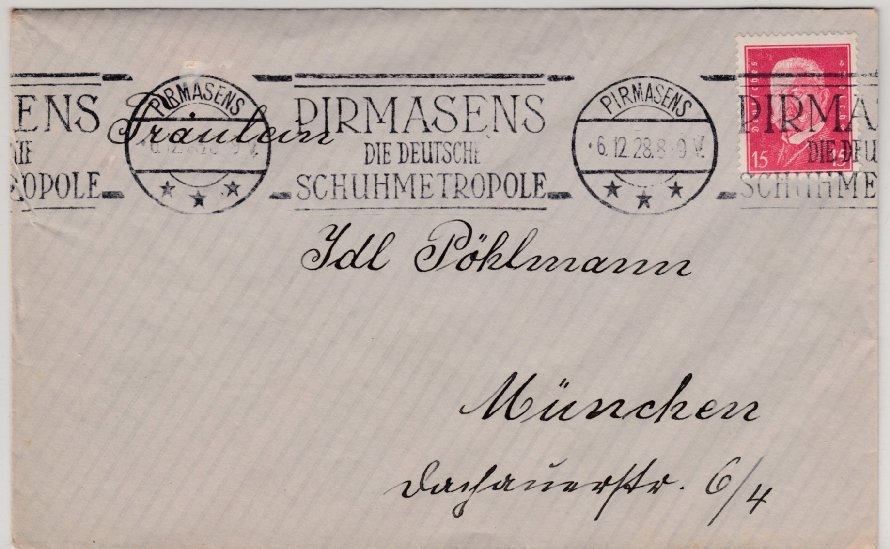 ENS PIRMASENS PIRMASENS PIRMASENS PIRMA
Fräulein
DIE DEUTSCHE 6.12.28.8-9 V. DIE DEU
EOPOLE SCHUHMETROPOLE SCHUHME
15 15
Idl Pöhlmann
München
Dachauerstr. 6/4